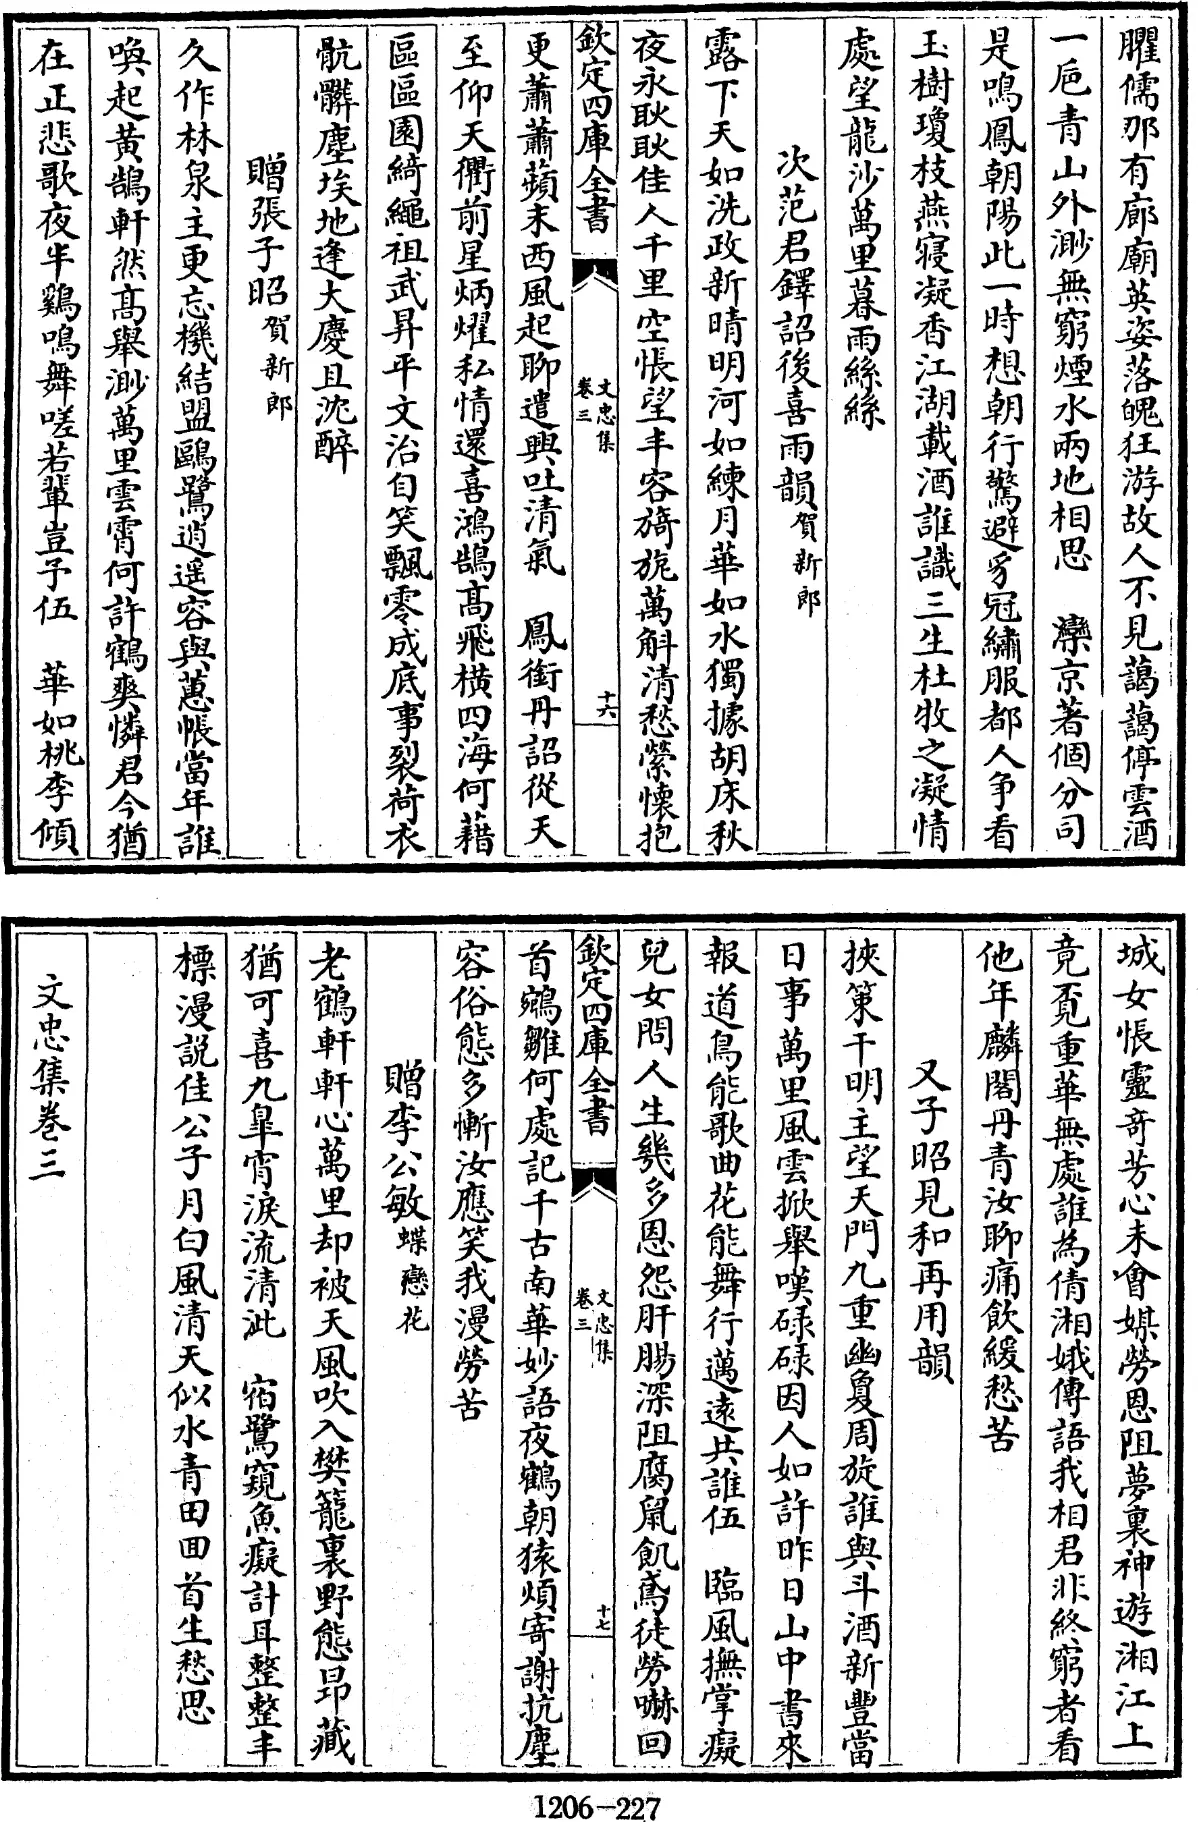 臞儒那有廊廟英姿落魄狂游故人不見藹藹停雲酒
一巵青山外渺無窮煙水兩地相思　灤京著個分司
是鳴鳳朝陽此一時想朝行驚避豸冠繡服都人争看
玉樹瓊枝燕寢凝香江湖載酒誰識三生杜牧之凝情
處望龍沙萬里暮雨絲絲
次范君鐸詔後喜雨韻賀新郎
露下天如洗政新晴明河如練月華如水獨據胡床秋
夜永耿耿佳人千里空悵望丰容旖旎萬斛清愁縈懷抱
欽定四庫全書
文忠集
卷三
十六
更蕭蕭蘋末西風起聊遣興吐清氣　鳳銜丹詔從天
至仰天衢前星炳耀私情還喜鴻鵠高飛橫四海何藉
區區園綺繩祖武昇平文治自笑飄零成底事裂荷衣
骯髒塵埃地逢大慶且沈醉
贈張子昭賀新郎
久作林泉主更忘機結盟鷗鷺逍遥容與蕙帳當年誰
喚起黄鵠軒然高舉渺萬里雲霄何許鶴爽憐君今猶
在正悲歌夜半鷄鳴舞嗟若輩豈予伍　華如桃李傾
城女悵靈奇芳心未會媒勞恩阻夢裏神遊湘江上
竟覔重華無處誰為倩湘娥傳語我相君非終窮者看
他年麟閣丹青汝聊痛飲緩愁苦
又子昭見和再用韻
挾策干明主望天門九重幽夐周旋誰與斗酒新豐當
日事萬里風雲掀舉嘆碌碌因人如許昨日山中書來
報道鳥能歌曲花能舞行邁遠共誰伍　臨風撫掌癡
兒女問人生幾多恩怨肝腸深阻腐䑕飢鳶徒勞嚇回
欽定四庫全書
文忠集
卷三
十七
首鵷雛何處記千古南華妙語夜鶴朝猿煩寄謝抗塵
容俗態多慚汝應笑我漫勞苦
贈李公敏蝶戀花
老鶴軒軒心萬里却被天風吹入樊籠裏野態昻藏
猶可喜九皐宵淚流清泚　宿鷺窺魚癡計耳整整丰
標漫説佳公子月白風清天似水青田囬首生愁思
文忠集卷三
1206-227